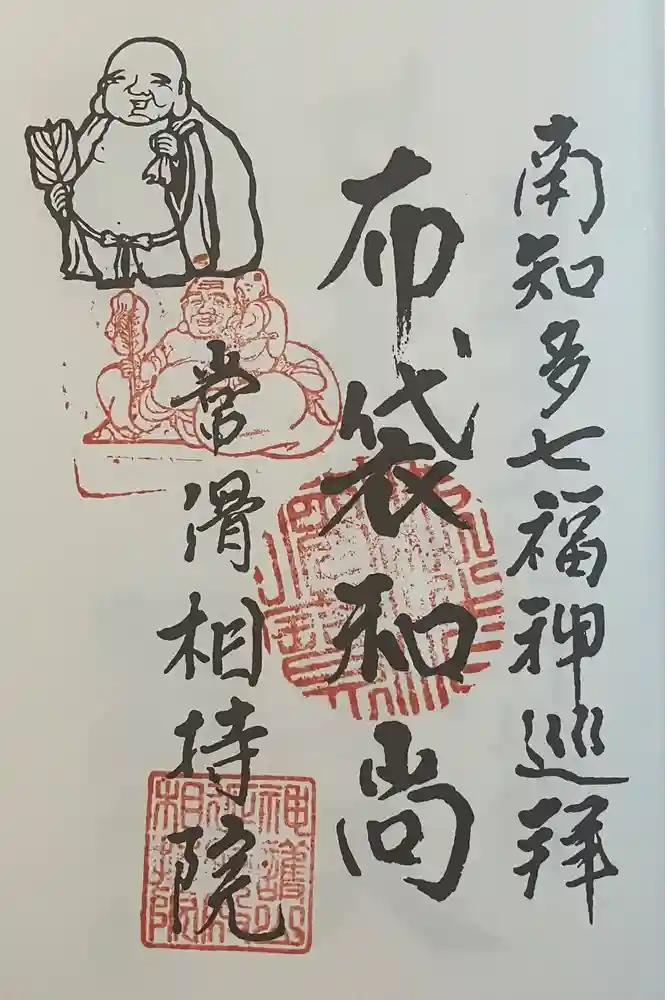 南知多七福神巡拜
布袋和尚
常滑相持院